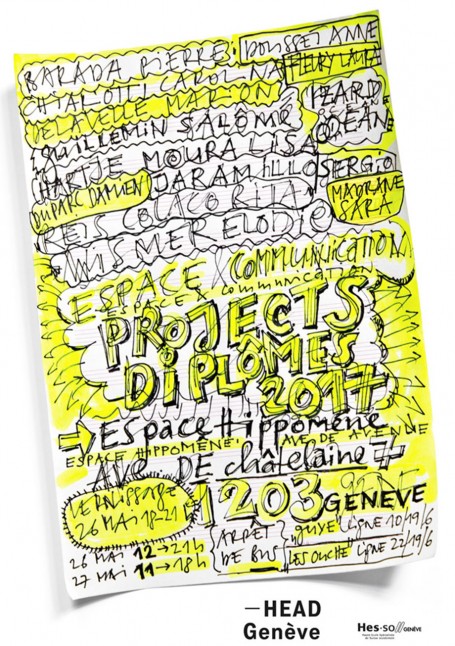 BARADA PIERRE
DOUSSET ANNE
CHIALOTTI CAROLINA
FLEURY LAURA
DELAVELLE MARION
IZARD OCÉANE
GUILLEMIN SALOMÉ
HARTJE MOURA LISA
DUPARC DAMIEN
JARAMILLO SERGIO
MADRANE SARA
REIS COLACO RITA
WISMER ELODIE
ESPACE & COMMUNICATION
ESPACE & communication
PROJECTS
DiPLÔMES
2017
ESpace Hippomène
ESPACE HIPPOMÈNE. AVE DE
AVE. DE châtelaine 7
1203 GENEVE
VERNISSAGE
26 MAI 18-21h
26 MAI 12→21h
27 MAI 11→18h
ARRET
DE BUS
LIGNE 10/19/6
LIGNE 22/19/6
—HEAD
Genève
Hes·so//GENÈVE